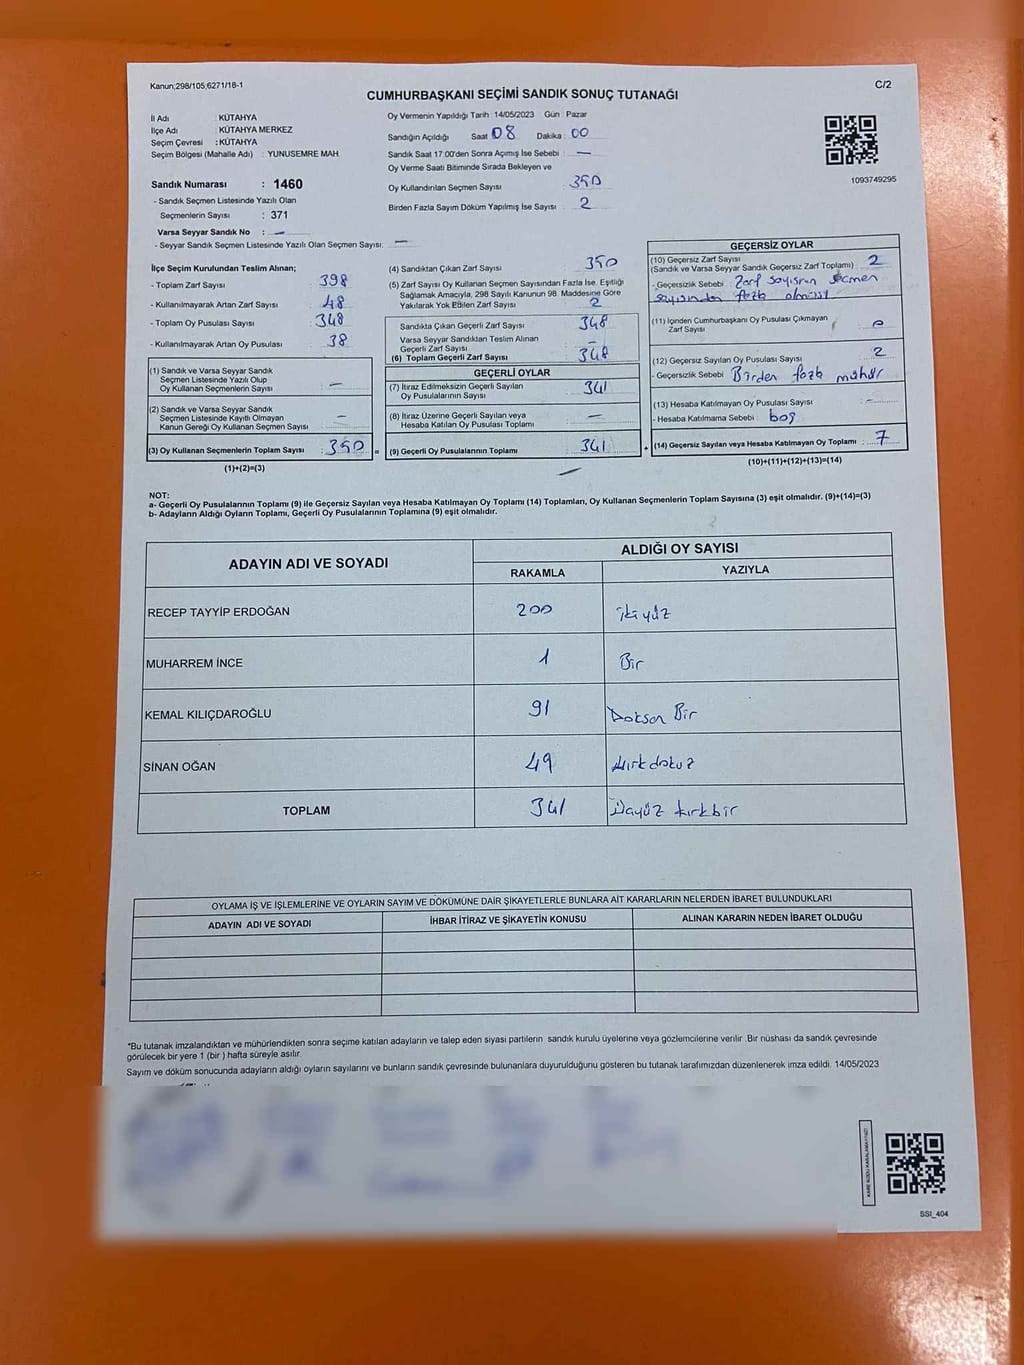 Kanun;298/105;6271/18-1
C/2
CUMHURBAŞKANI SEÇİMİ SANDIK SONUÇ TUTANAĞI
İl Adı : KÜTAHYA
İlçe Adı : KÜTAHYA MERKEZ
Seçim Çevresi : KÜTAHYA
Seçim Bölgesi (Mahalle Adı) : YUNUSEMRE MAH
Sandık Numarası : 1460
- Sandık Seçmen Listesinde Yazılı Olan
Seçmenlerin Sayısı : 371
Varsa Seyyar Sandık No : —
- Seyyar Sandık Seçmen Listesinde Yazılı Olan Seçmen Sayısı: —
Oy Vermenin Yapıldığı Tarih :14/05/2023 Gün : Pazar
Sandığın Açıldığı Saat 08 Dakika : 00
Sandık Saat 17:00'den Sonra Açımış İse Sebebi : —
Oy Verme Saati Bitiminde Sırada Bekleyen ve
Oy Kullandırılan Seçmen Sayısı : 350
Birden Fazla Sayım Döküm Yapılmış İse Sayısı : 2
1093749295
İlçe Seçim Kurulundan Teslim Alınan;
- Toplam Zarf Sayısı : 398
- Kullanılmayarak Artan Zarf Sayısı : 48
- Toplam Oy Pusulası Sayısı : 348
- Kullanılmayarak Artan Oy Pusulası : 38
(1) Sandık ve Varsa Seyyar Sandık
Seçmen Listesinde Yazılı Olup
Oy Kullanan Seçmenlerin Sayısı : —
(2) Sandık ve Varsa Seyyar Sandık
Seçmen Listesinde Kayıtlı Olmayan
Kanun Gereği Oy Kullanan Seçmen Sayısı : —
(3) Oy Kullanan Seçmenlerin Toplam Sayısı : 350 =
(1)+(2)=(3)
(4) Sandıktan Çıkan Zarf Sayısı : 350
(5) Zarf Sayısı Oy Kullanan Seçmen Sayısından Fazla İse, Eşitliği
Sağlamak Amacıyla, 298 Sayılı Kanunun 98. Maddesine Göre
Yakılarak Yok Edilen Zarf Sayısı : 2
Sandıkta Çıkan Geçerli Zarf Sayısı : 348
Varsa Seyyar Sandıktan Teslim Alınan
Geçerli Zarf Sayısı : —
(6) Toplam Geçerli Zarf Sayısı : 348
GEÇERLİ OYLAR
(7) İtiraz Edilmeksizin Geçerli Sayılan
Oy Pusulalarının Sayısı : 341
(8) İtiraz Üzerine Geçerli Sayılan veya
Hesaba Katılan Oy Pusulası Toplamı : —
(9) Geçerli Oy Pusulalarının Toplamı : 341 +
GEÇERSİZ OYLAR
(10) Geçersiz Zarf Sayısı
(Sandık ve Varsa Seyyar Sandık Geçersiz Zarf Toplamı) : 2
- Geçersizlik Sebebi : Zarf sayısının seçmen
sayısından fazla olması
(11) İçinden Cumhurbaşkanı Oy Pusulası Çıkmayan
Zarf Sayısı :
(12) Geçersiz Sayılan Oy Pusulası Sayısı : 2
- Geçersizlik Sebebi : Birden fazla mühür
(13) Hesaba Katılmayan Oy Pusulası Sayısı : -
- Hesaba Katılmama Sebebi : boş
(14) Geçersiz Sayılan veya Hesaba Katılmayan Oy Toplamı : 7
(10)+(11)+(12)+(13)=(14)
NOT:
a- Geçerli Oy Pusulalarının Toplamı (9) ile Geçersiz Sayılan veya Hesaba Katılmayan Oy Toplamı (14) Toplamları, Oy Kullanan Seçmenlerin Toplam Sayısına (3) eşit olmalıdır. (9)+(14)=(3)
b- Adayların Aldığı Oyların Toplamı, Geçerli Oy Pusulalarının Toplamına (9) eşit olmalıdır.
ADAYIN ADI VE SOYADI ALDIĞI OY SAYISI
RAKAMLA YAZIYLA
RECEP TAYYİP ERDOĞAN 200 ikiyüz
MUHARREM İNCE 1 Bir
KEMAL KILIÇDAROĞLU 91 Doksan Bir
SİNAN OĞAN 49 kırkdokuz
TOPLAM 341 Üçyüz kırkbir
OYLAMA İŞ VE İŞLEMLERİNE VE OYLARIN SAYIM VE DÖKÜMÜNE DAİR ŞİKAYETLERLE BUNLARA AİT KARARLARIN NELERDEN İBARET BULUNDUKLARI
ADAYIN ADI VE SOYADI İHBAR İTİRAZ VE ŞİKAYETİN KONUSU ALINAN KARARIN NEDEN İBARET OLDUĞU
*Bu tutanak imzalandıktan ve mühürlendikten sonra seçime katılan adayların ve talep eden siyasi partilerin sandık kurulu üyelerine veya gözlemcilerine verilir .Bir nüshası da sandık çevresinde
görülecek bir yere 1 (bir ) hafta süreyle asılır.
Sayım ve döküm sonucunda adayların aldığı oyların sayılarını ve bunların sandık çevresinde bulunanlara duyurulduğunu gösteren bu tutanak tarafımızdan düzenlenerek imza edildi. 14/05/2023
KARE KODU KARALAMAYINIZ!
SSI_404